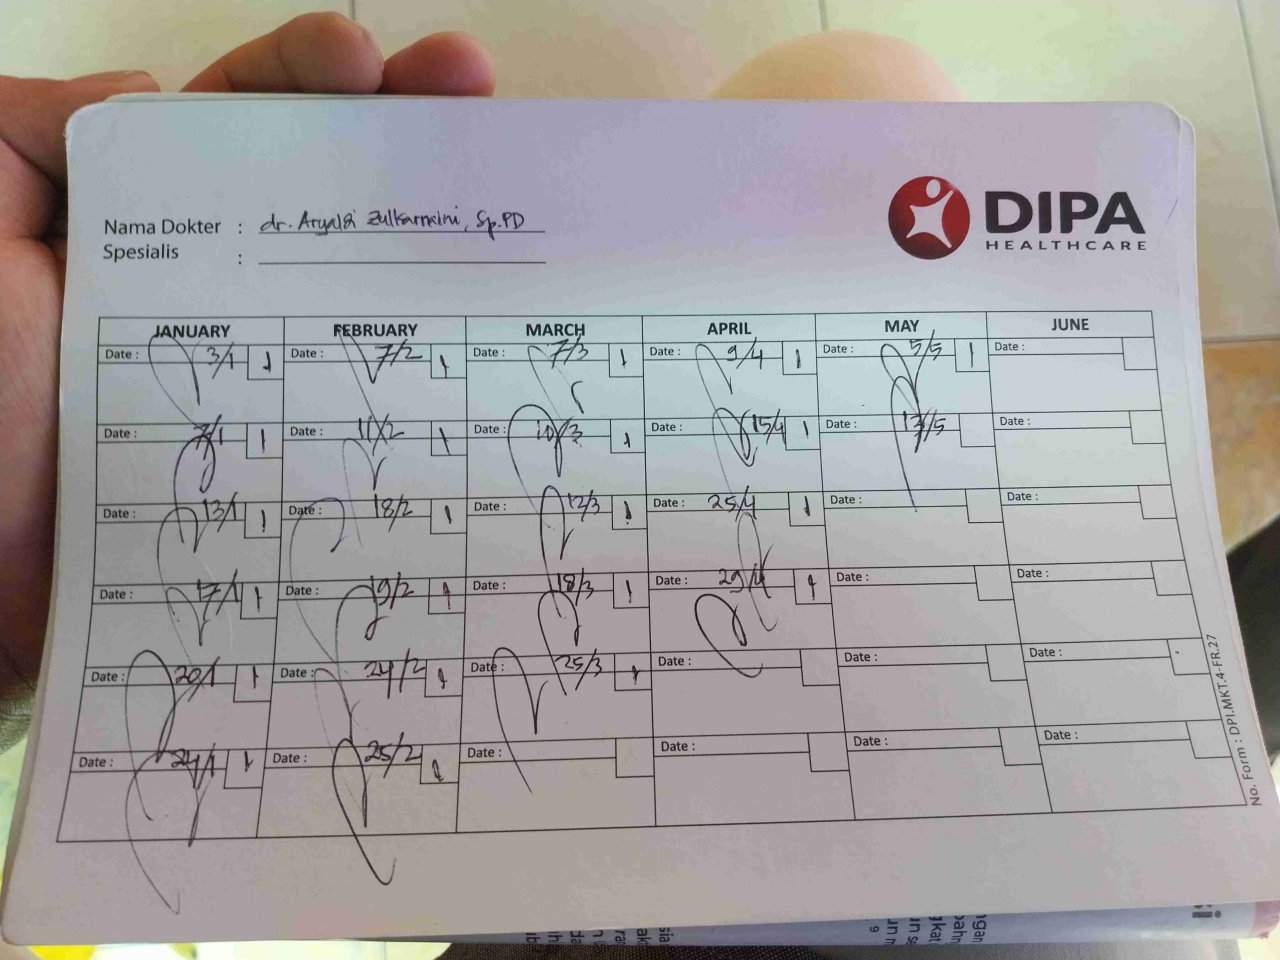 DIPA
HEALTHCARE
Nama Dokter : dr. Aryaldi Zulkarnaini, Sp.PD
Spesialis :
JANUARY FEBRUARY MARCH APRIL MAY JUNE
Date : 3/1 1 Date : 7/2 1 Date : 7/3 1 Date : 9/4 1 Date : 5/5 1 Date :
Date : 7/1 1 Date : 11/2 1 Date : 10/3 1 Date : 15/4 1 Date : 13/5 Date :
Date : 13/1 1 Date : 18/2 1 Date : 12/3 1 Date : 25/4 1 Date : Date :
Date : 17/1 1 Date : 19/2 1 Date : 18/3 1 Date : 29/4 1 Date : Date :
Date : 20/1 1 Date : 24/2 1 Date : 25/3 1 Date : Date : Date :
Date : 24/1 1 Date : 25/2 1 Date : Date : Date : Date :
No. Form : DPI.MKT.4-FR.27